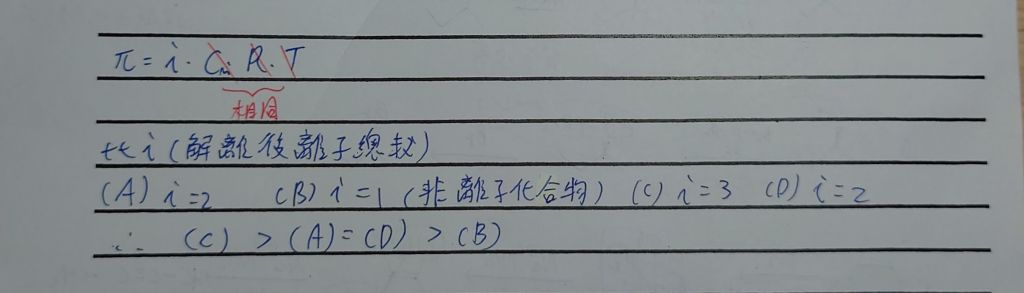 π = i · Cₘ · R · T
相同
比 i (解離後離子總數)
(A) i = 2 (B) i = 1 (非離子化合物) (C) i = 3 (D) i = 2
∴ (C) > (A) = (D) > (B)